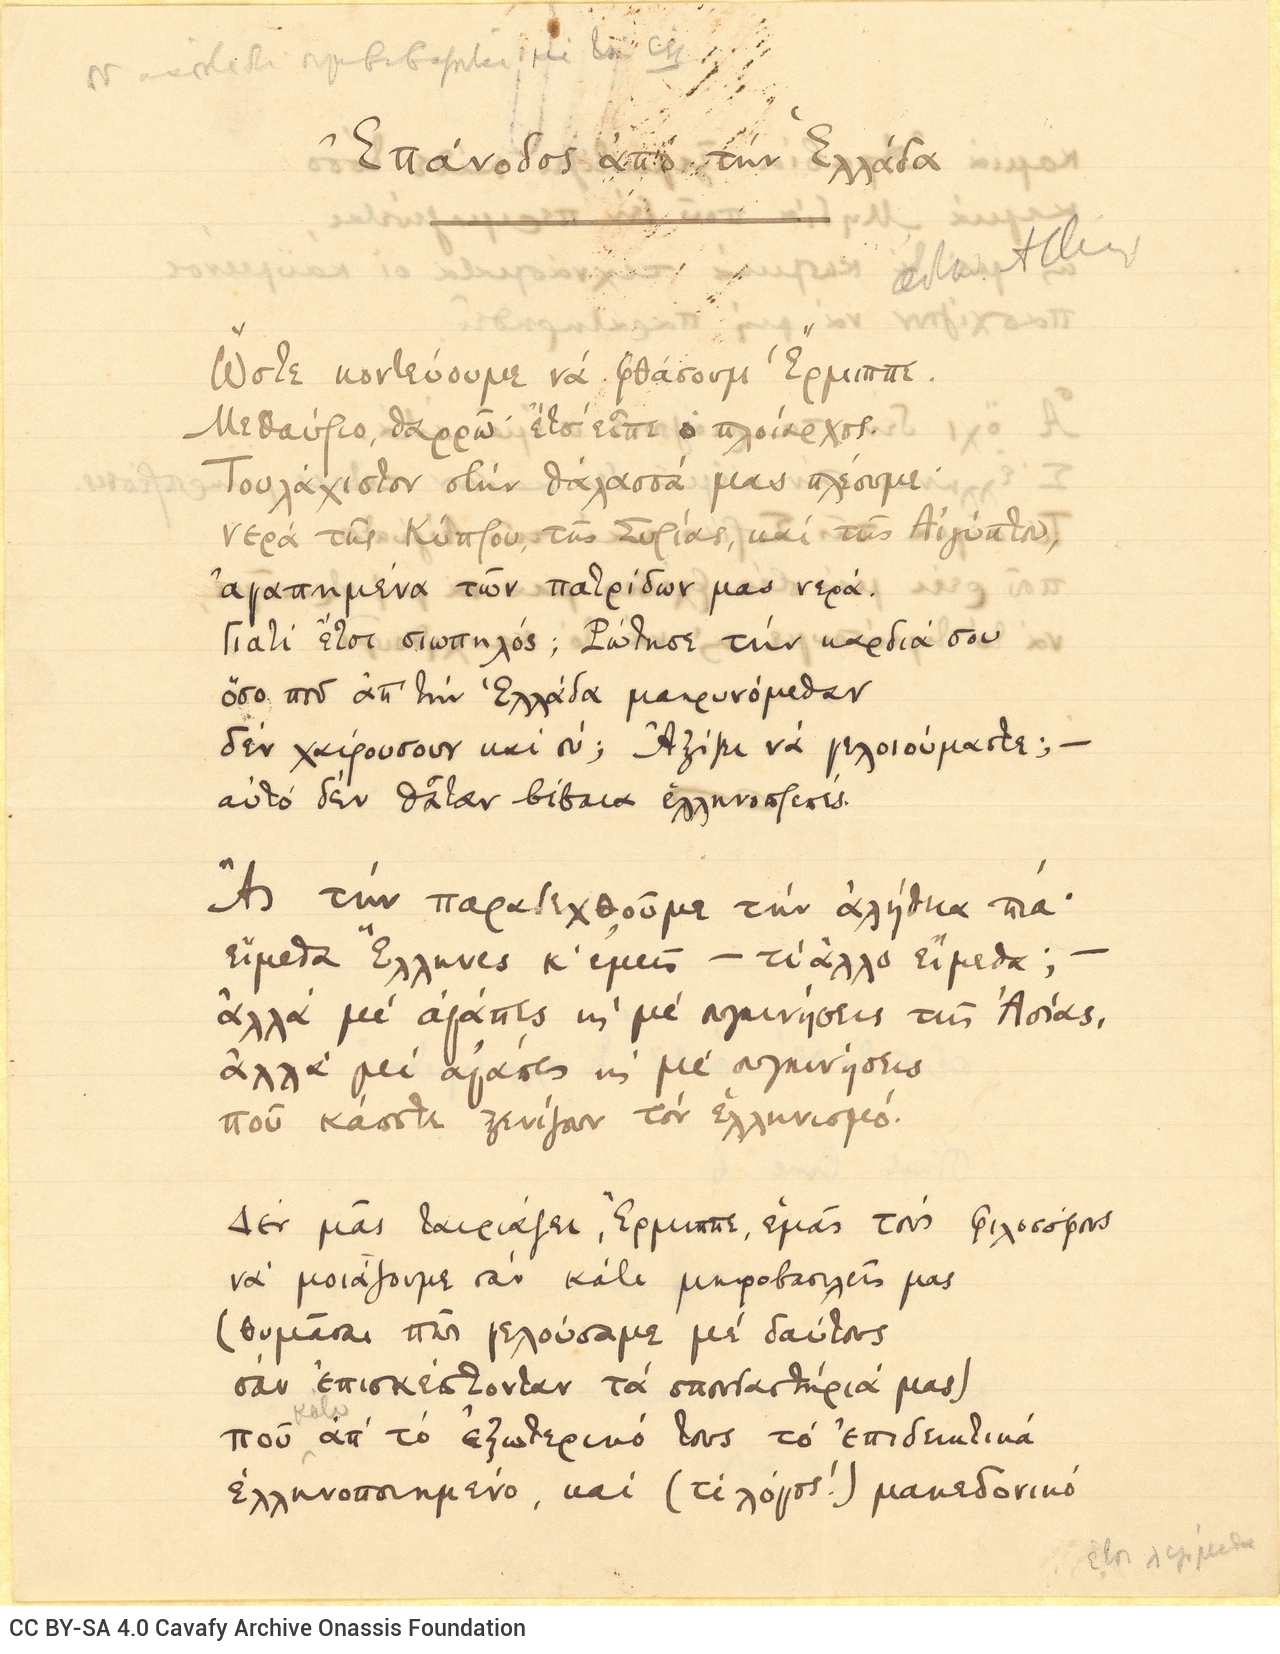 Ἐπάνοδος ἀπό τήν Ἑλλάδα
Ὥστε κοντεύουμε νά φθάσουμ' Ἕρμιππε.
Μεθαύριο, θαρρῶ· ἔτσ' εἶπε ὁ πλοίαρχος.
Τουλάχιστον στήν θάλασσά μας πλέουμε·
νερά τῆς Κύπρου, τῆς Συρίας, καί τῆς Αἰγύπτου,
ἀγαπημένα τῶν πατρίδων μας νερά.
Γιατί ἔτσι σιωπηλός; Ρώτησε τήν καρδιά σου
ὅσο ποῦ ἀπ' τήν Ἑλλάδα μακρυνόμεθαν
δέν χαίρουσουν καί σύ; Ἀξίζει νά γελοιούμαστε; —
αὐτό δέν θἆταν βέβαια ἑλληνοπρεπές.
Ἄς τήν παραδεχθοῦμε τήν ἀλήθεια πιά·
εἴμεθα Ἕλληνες κ' ἐμεῖς — τί ἄλλο εἴμεθα; —
ἀλλά μέ ἀγάπες κι μέ συγκινήσεις τῆς Ἀσίας,
ἀλλά μέ ἀγάπες κι μέ συγκινήσεις
ποῦ κάποτε ξενίζουν τόν ἑλληνισμό.
Δέν μᾶς ταιριάζει, Ἕρμιππε, ἐμᾶς τούς φιλοσόφους
νά μοιάζουμε σάν κάτι μικροβασιλεῖς μας
(θυμᾶσαι πῶς γελούσαμε μέ δαύτους
σάν ἐπισκέπτονταν τά σπουδαστήριά μας)
κάτω
ποῦ ἀπ' τό ἐξωτερικό τους τό ἐπιδεικτικά
ἑλληνοποιημένο, καί (τί λόγος!) μακεδονικό
ἔτσι
CC BY-SA 4.0 Cavafy Archive Onassis Foundation